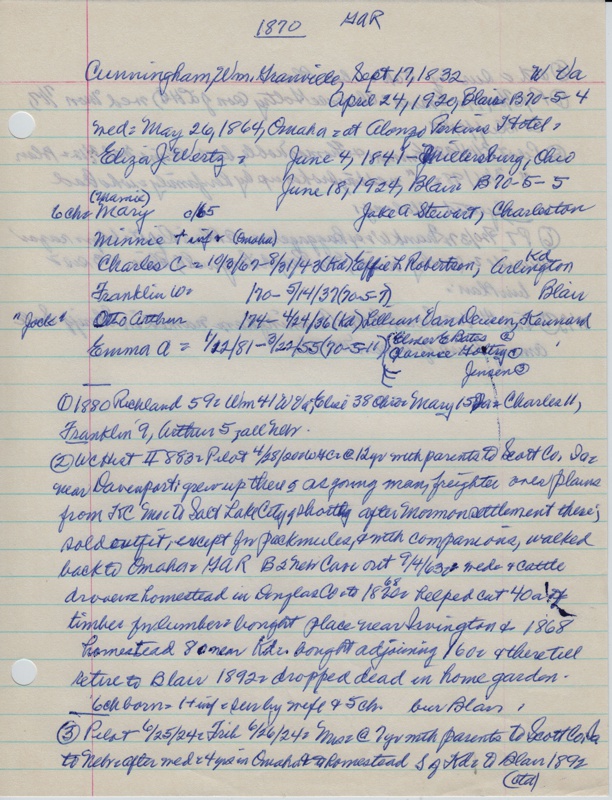 1870 GAR
Cunningham, Wm. Granville, Sept 17, 1832 W. Va
April 24, 1920, Blair B70-5-4
med = May 26, 1864, Omaha = at Alonzo Perkins Hotel =
Eliza J. Wertz = June 4, 1841 - Millersburg, Ohio
June 18, 1924, Blair B70-5-5
(Mamie)
6ch = Mary c/65 Jake A Stewart, Charleston
Minnie + inf = (Omaha)
Charles C = 10/3/67-8/31/43 (Kd) Effie L Robertson, Arlington
Kd
Franklin W = /70-5/14/37 (70-5-7) Blair
"Jock" Otto Arthur /74-4/24/36 (Kd) Lillian Van Deusen, Kennard
Emma A = 1/22/81-3/22/55 (70-5-11) Elmer E Bates ②
Clarence ①
Jensen ③
① 1880 Richland 59 = Wm 41 W Va, 38 Ohio = Mary 15 = Charles 11,
Franklin 9, Arthur 5, all Nebr.
② WC Hist II 88 = Pilot 4/28/20 @ 12 yr with parents to Scott Co, Ia =
near Davenport; grew up there; as young man, freighter over plains
from KC Mo to Salt Lake City, shortly after Mormon settlement there;
sold outfit, except for pack mules, & with companions, walked
back to Omaha = GAR B 2 Neb Cav = out 9/4/63 = med = cattle
drover = homestead in Douglas Co to 1868 = helped cut 40a
timber for lumber = bought place near Irvington & 1868
homestead 80 near Kd = bought adjoining 160 = & there till
retire to Blair 1892 = dropped dead in home garden.
6ch born = 1 + inf = sur by wife & 5ch bur Blair.
③ Pilot 6/25/24 = Trib 6/26/24 = @ 7yr with parents to Scott Co, Ia
to Nebr = after med = 4 yrs in Omaha & homestead S of Kd = to Blair 1892